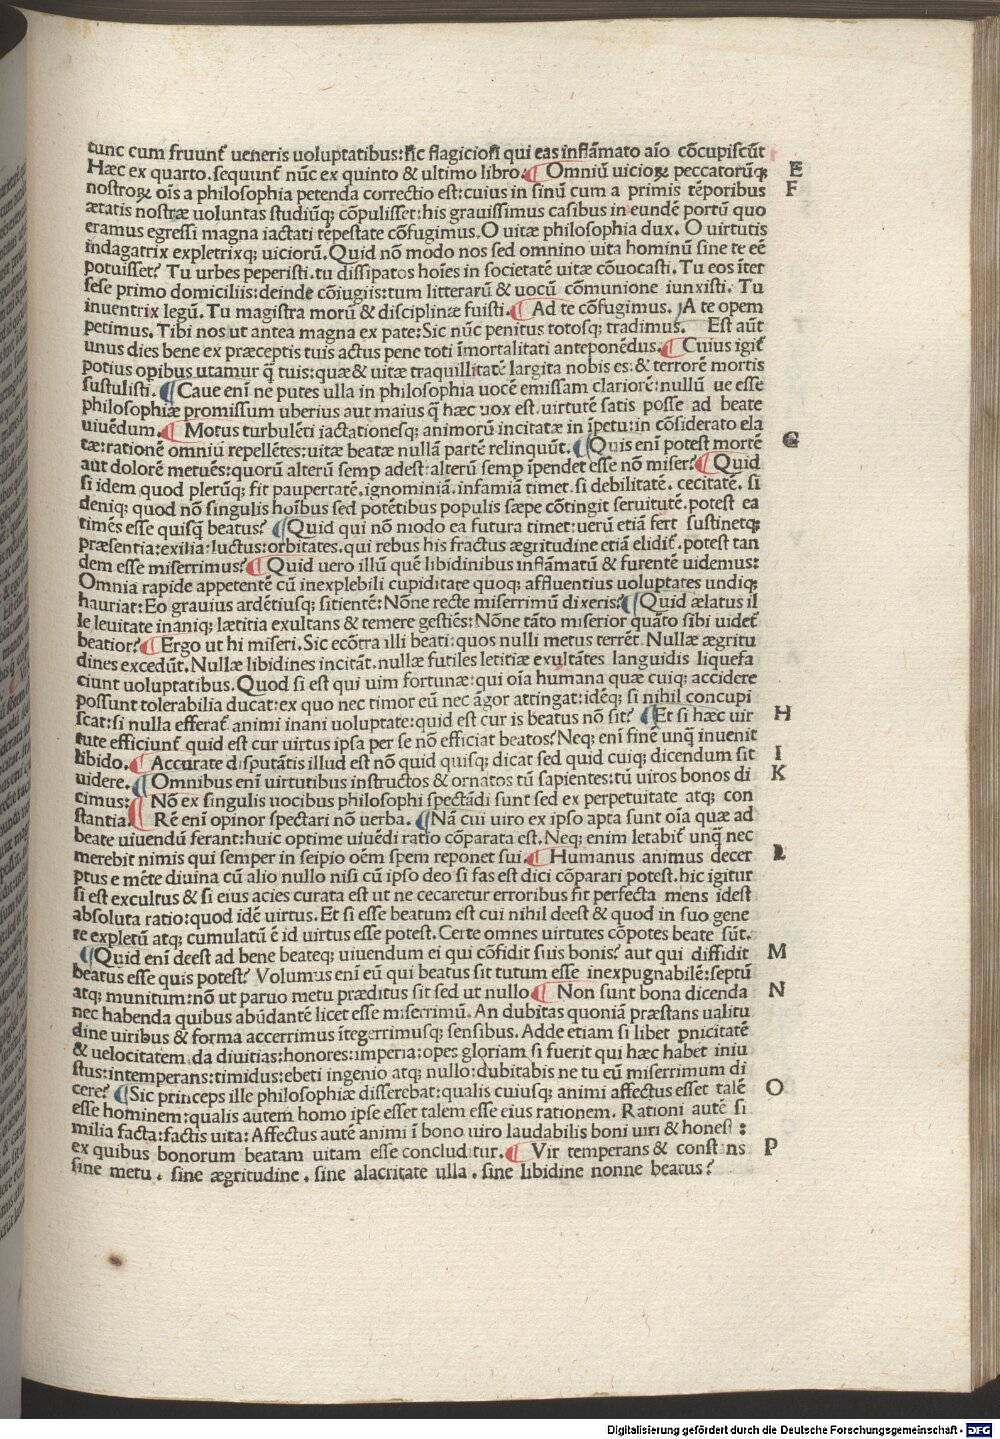 tunc cum fruunt᷑ ueneris uoluptatibus: sic flagiciosi qui eas inflāmato aīo cōcupiscūt
Hæc ex quarto. sequunt᷑ nūc ex quinto & ultimo libro. ¶ Omniū uicioꝝ peccatorūqꝫ E
nostroꝝ oīs a philosophia petenda correctio est: cuius in sinū cum a primis tēporibus F
ætatis nostræ uoluntas studiūqꝫ cōpulisset: his grauissimus casibus in eundē portū quo
eramus egressi magna iactati tēpestate cōfugimus. O uitæ philosophia dux. O uirtutis
indagatrix expletrixqꝫ uiciorū. Quid nō modo nos sed omnino uita hominū sine te eē
potuisset? Tu urbes peperisti. tu dissipatos hoīes in societatē uitæ cōuocasti. Tu eos īter
sese primo domiciliis: deinde cōiugiis: tum litterarū & uocū cōmunione iunxisti. Tu
inuentrix legū. Tu magistra morū & disciplinæ fuisti. ¶ Ad te cōfugimus. A te opem
petimus. Tibi nos ut antea magna ex pate: Sic nūc penitus totosqꝫ tradimus. Est aūt
unus dies bene ex præceptis tuis actus pene toti īmortalitati anteponēdus. ¶ Cuius igit᷑
potius opibus utamur q̄ tuis: quæ & uitæ traquillitatē largita nobis es: & terrorē mortis
sustulisti. ¶ Caue enī ne putes ulla in philosophia uocē emissam clariorē: nullū ue esse
philosophiæ promissum uberius aut maius q̄ hæc uox est. uirtutē satis posse ad beate
uiuēdum. ¶ Motus turbulēti iactationesqꝫ animorū incitatæ in īpetu: in cōsiderato ela
tæ: rationē omniū repellētes: uitæ beatæ nullā partē relinquūt. ¶ Quis enī potest mortē G
aut dolorē metuēs: quorū alterū semp adest: alterū semp īpendet esse nō miser? ¶ Quid
si idem quod plerūqꝫ fit paupertatē. ignominiā. infamiā timet. si debilitatē. cecitatē. si
deniqꝫ quod nō singulis hoībus sed potētibus populis sæpe cōtingit seruitutē. potest ea
timēs esse quisq̄ beatus? ¶ Quid qui nō modo ea futura timet: uerū etiā fert sustinetqꝫ
præsentia: exilia: luctus: orbitates. qui rebus his fractus ægritudine etiā elidit᷑. potest tan
dem esse miserrimus? ¶ Quid uero illū quē libidinibus inflāmatū & furentē uidemus:
Omnia rapide appetentē cū inexplebili cupiditate quoqꝫ affluentius uoluptates undiqꝫ
hauriat: Eo grauius ardētiusqꝫ sitientē: Nōne recte miserrimū dixeris? ¶ Quid ælatus il
le leuitate inaniqꝫ lætitia exultans & temere gestiēs: Nōne tāto miserior quāto sibi uidet᷑
beatior? ¶ Ergo ut hi miseri. Sic ecōtra illi beati: quos nulli metus terrēt. Nullæ ægritu
dines excedūt. Nullæ libidines incitāt. nullæ futiles letitiæ exultātes languidis liquefa
ciunt uoluptatibus. Quod si est qui uim fortunæ: qui oīa humana quæ cuiqꝫ accidere
possunt tolerabilia ducat: ex quo nec timor eū nec āgor attingat: idēqꝫ si nihil concupi
scat: si nulla efferat᷑ animi inani uoluptate: quid est cur is beatus nō sit? ¶ Et si hæc uir H
tute efficiunt᷑ quid est cur uirtus ipsa per se nō efficiat beatos? Neqꝫ enī finē unq̄ inuenit
libido. ¶ Accurate disputātis illud est nō quid quisqꝫ dicat sed quid cuiqꝫ dicendum sit I
uidere. ¶ Omnibus enī uirtutibus instructos & ornatos tū sapientes: tū uiros bonos di K
cimus: ¶ Nō ex singulis uocibus philosophi spectādi sunt sed ex perpetuitate atqꝫ con
stantia. ¶ Rē enī opinor spectari nō uerba. ¶ Nā cui uiro ex ipso apta sunt oīa quæ ad
beate uiuendū ferant: huic optime uiuēdi ratio cōparata est. Neqꝫ enim letabit᷑ unq̄ nec
merebit nimis qui semper in seipio oēm spem reponet sui. ¶ Humanus animus decer L
ptus e mēte diuina cū alio nullo nisi cū ipso deo si fas est dici cōparari potest. hic igitur
si est excultus & si eius acies curata est ut ne cecaretur erroribus fit perfecta mens idest
absoluta ratio: quod idē uirtus. Et si esse beatum est cui nihil deest & quod in suo gene
re expletū atqꝫ cumulatū ē id uirtus esse potest. Certe omnes uirtutes cōpotes beate sūt.
¶ Quid enī deest ad bene beateqꝫ uiuendum ei qui cōfidit suis bonis? aut qui diffidit M
beatus esse quis potest? Volumus enī eū qui beatus sit tutum esse inexpugnabilē: septū
atqꝫ munitum: nō ut paruo metu præditus sit sed ut nullo ¶ Non sunt bona dicenda N
nec habenda quibus abūdantē licet esse miserrimū. An dubitas quoniā præstans ualitu
dine uiribus & forma accerrimus ītegerrimusqꝫ sensibus. Adde etiam si libet pnicitatē
& uelocitatem. da diuitias: honores: imperia: opes gloriam si fuerit qui hæc habet iniu
stus: intemperans: timidus: ebeti ingenio atqꝫ nullo: dubitabis ne tu eū miserrimum di
cere? ¶ Sic princeps ille philosophiæ disserebat: qualis cuiusqꝫ animi affectus esset talē O
esse hominem: qualis autem homo ipse esset talem esse eius rationem. Rationi autē si
milia facta: factis uita: Affectus autē animi ī bono uiro laudabilis boni uiri & honest :
ex quibus bonorum beatam uitam esse concluditur. ¶ Vir temperans & constans P
sine metu. sine ægritudine. sine alacritate ulla. sine libidine nonne beatus?
Digitalisierung gefördert durch die Deutsche Forschungsgemeinschaft - DFG